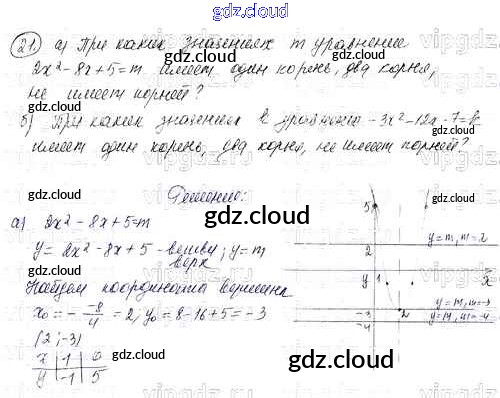 gdz.cloud
21. а) При каких значениях m уравнение
2x² - 8x + 5 = m имеет один корень, два корня,
не имеет корней?
б) При каких значениях в уравнении -3x² - 12x - 7 = в
имеет один корень, два корня, не имеет корней?
Решение:
а) 2x² - 8x + 5 = m
y = 2x² - 8x + 5 - ветви вверх; y = m
Найдем координаты вершины
x₀ = - -8/4 = 2; y₀ = 8 - 16 + 5 = -3
(2; -3)
x | -1 | 0
y | -1 | 5
5
y = m, m = 2
2
y 1 x
y = m, m = -3
-3 2
y = m, m = -4
-4
gdz.cloud
gdz.cloud
gdz.cloud
gdz.cloud
gdz.cloud
gdz.cloud
gdz.cloud
gdz.cloud
gdz.cloud
gdz.cloud
gdz.cloud